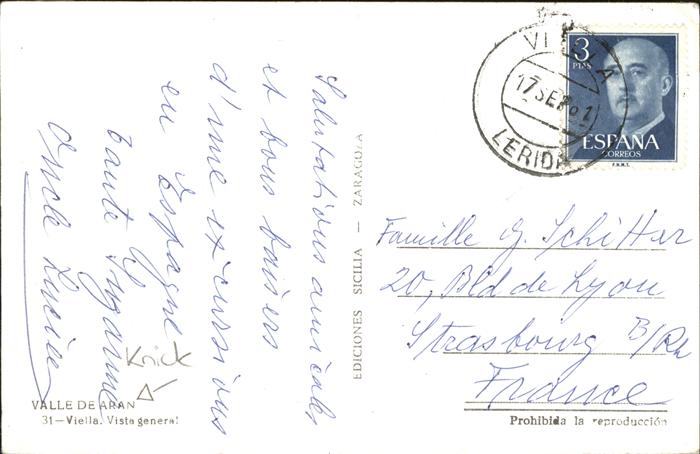 Salutations amicales
et bons baisers
d'une excursions
en Espagne
Tante Suzanne
Oncle Lucien
Knick
VALLE DE ARAN
31—Viella. Vista general
EDICIONES SICILIA — ZARAGOZA
VIELLA
17 SEP 61
LERIDA
3
PTAS
ESPAÑA
CORREOS
F.N.M.T.
Famille G. Schitter
20, Bld de Lyon
Strasbourg B/Rh
France
Prohibida la reproducción